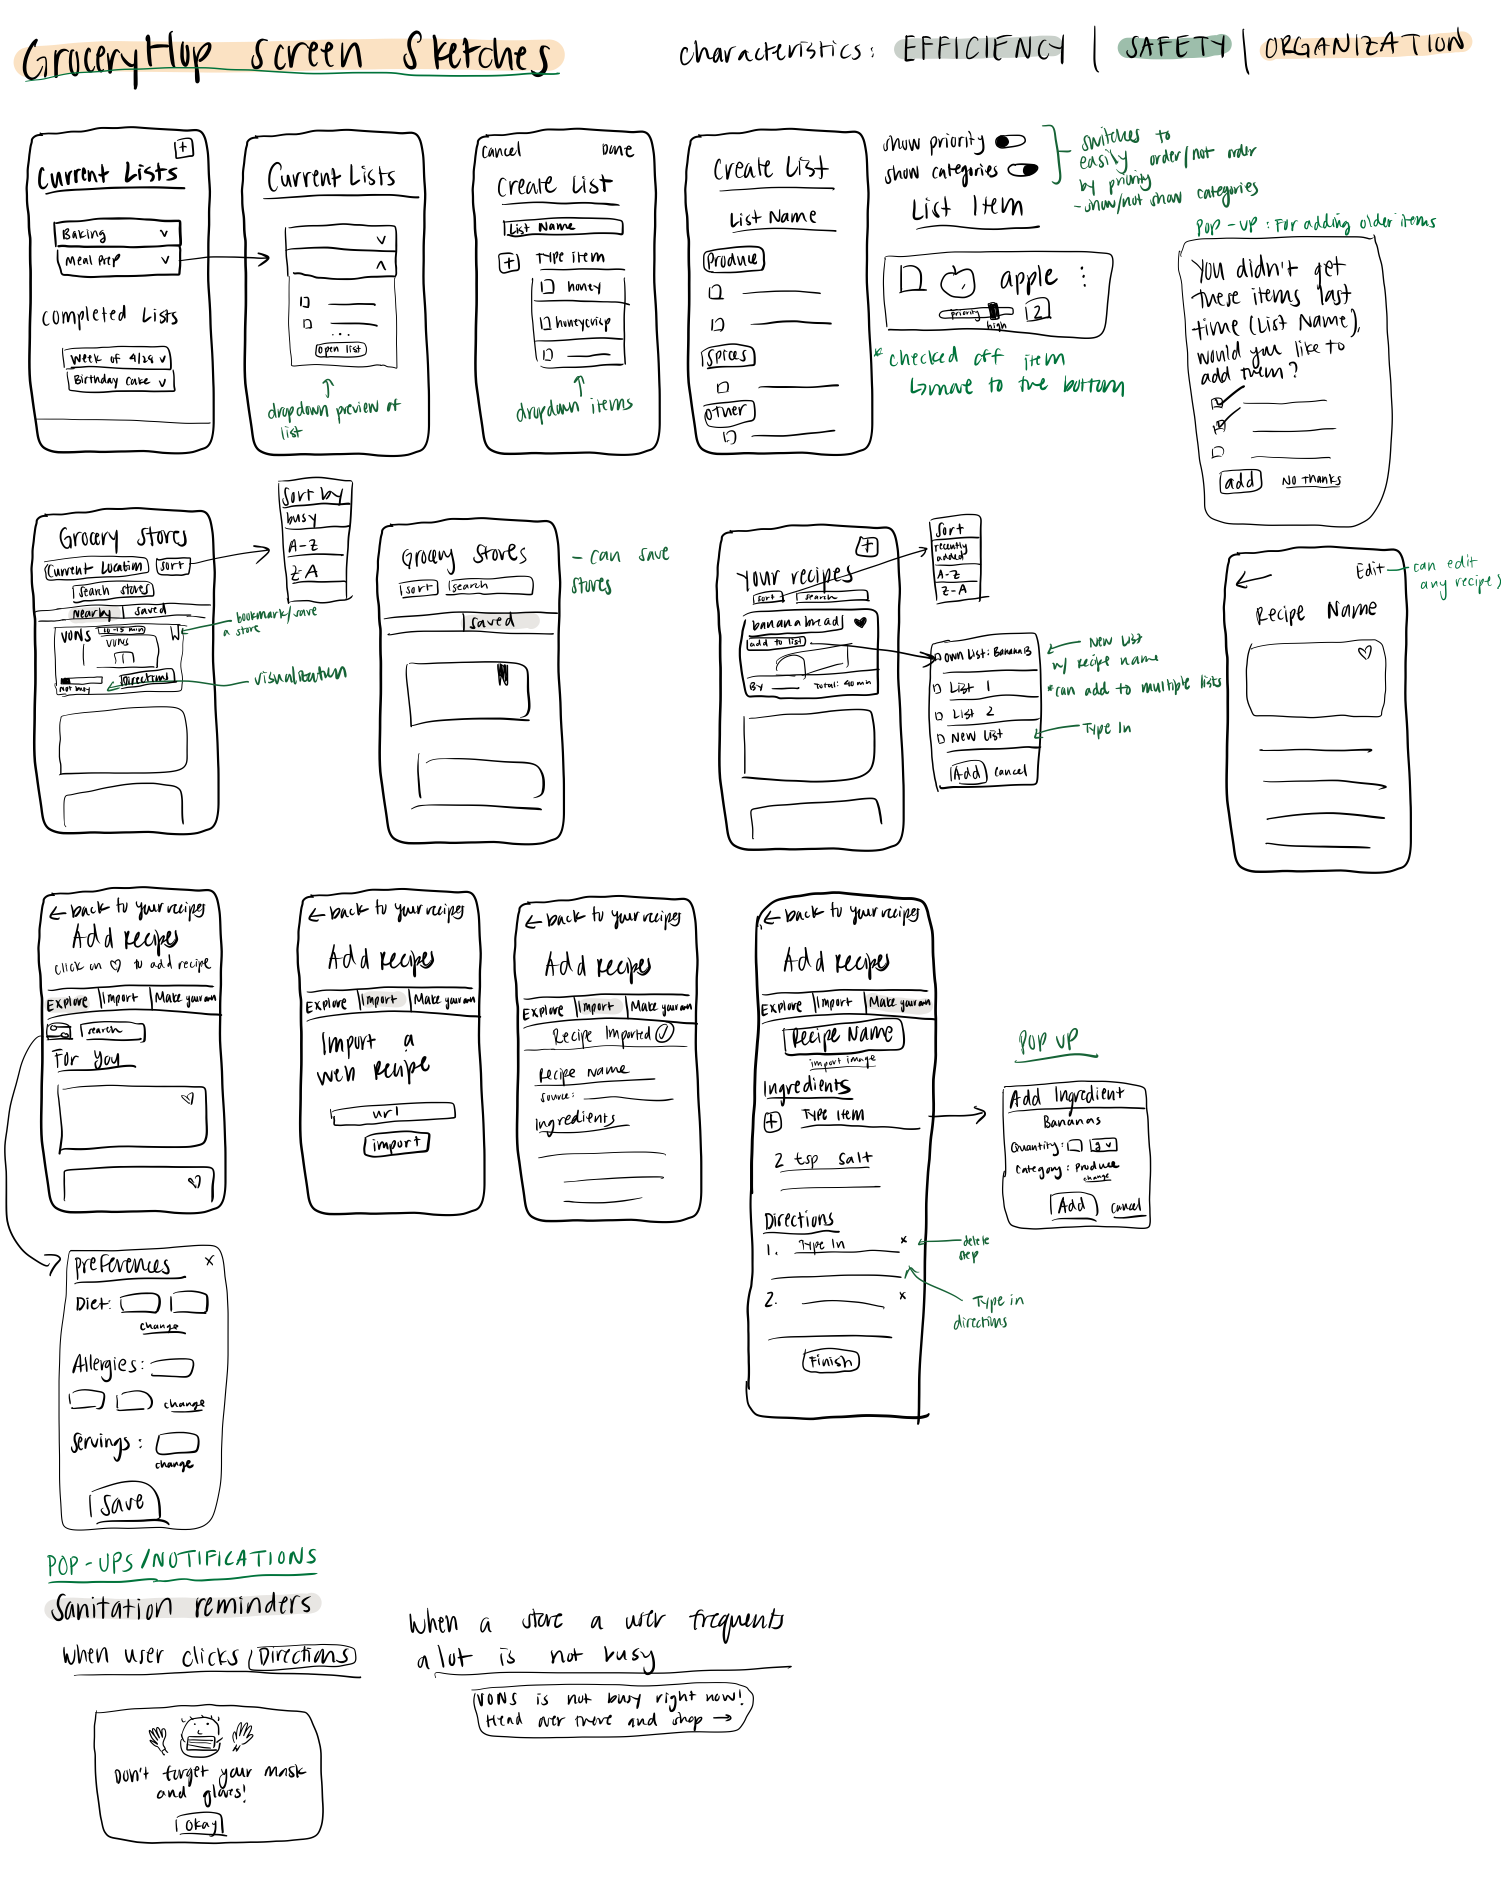 GroceryHop screen Sketches
characteristics: EFFICIENCY | SAFETY | ORGANIZATION
+
Current Lists
Baking v
Meal Prep v
Completed Lists
Week of 4/28 v
Birthday Cake v
Current Lists
v
^
...
open list
dropdown preview of
list
Cancel Done
Create List
List Name
+ Type item
honey
honeycrisp
dropdown items
Create List
List Name
Produce
Spices
other
show priority
show categories
- switches to
easily order/not order
by priority
- show/not show categories
List Item
apple :
priority
high
2
* checked off item
↳ move to the bottom
Pop-up: For adding older items
You didn't get
these items last
time (List Name),
would you like to
add them?
add No thanks
Grocery Stores
Current Location sort
search stores
nearby saved
VONS 10-15 min
VONS
not busy Directions
bookmark/save
a store
visualization
Sort by
busy
A-Z
Z-A
Grocery Stores
sort search
saved
- can save
stores
+
Your recipes
sort search
banana bread ♥
add to list
By ___ Total: 40 min
Sort
recently
added
A-Z
Z-A
own List: Banana B
List 1
List 2
New List
Add cancel
New List
w/ recipe name
*can add to multiple lists
Type In
← Edit
Recipe Name
can edit
any recipes
← back to your recipes
Add recipes
click on ♡ to add recipe
Explore Import Make your own
search
For You
← back to your recipes
Add recipes
Explore Import Make your own
Import a
web recipe
url
import
← back to your recipes
Add recipes
Explore Import Make your own
Recipe Imported ✓
Recipe Name
source:
Ingredients
← back to your recipes
Add recipes
Explore Import Make your own
Recipe Name
import image
Ingredients
+ Type Item
2 tsp salt
Directions
1. Type In x
2. x
Finish
delete
step
Type in
directions
Pop up
Add Ingredient
Bananas
Quantity: g v
Category: Produce
change
Add cancel
Preferences x
Diet:
change
Allergies:
change
Servings:
change
Save
POP-UPS/NOTIFICATIONS
Sanitation reminders
When user clicks Directions
Don't forget your mask
and gloves!
okay
When a store a user frequents
a lot is not busy
VONS is not busy right now!
Head over there and shop →